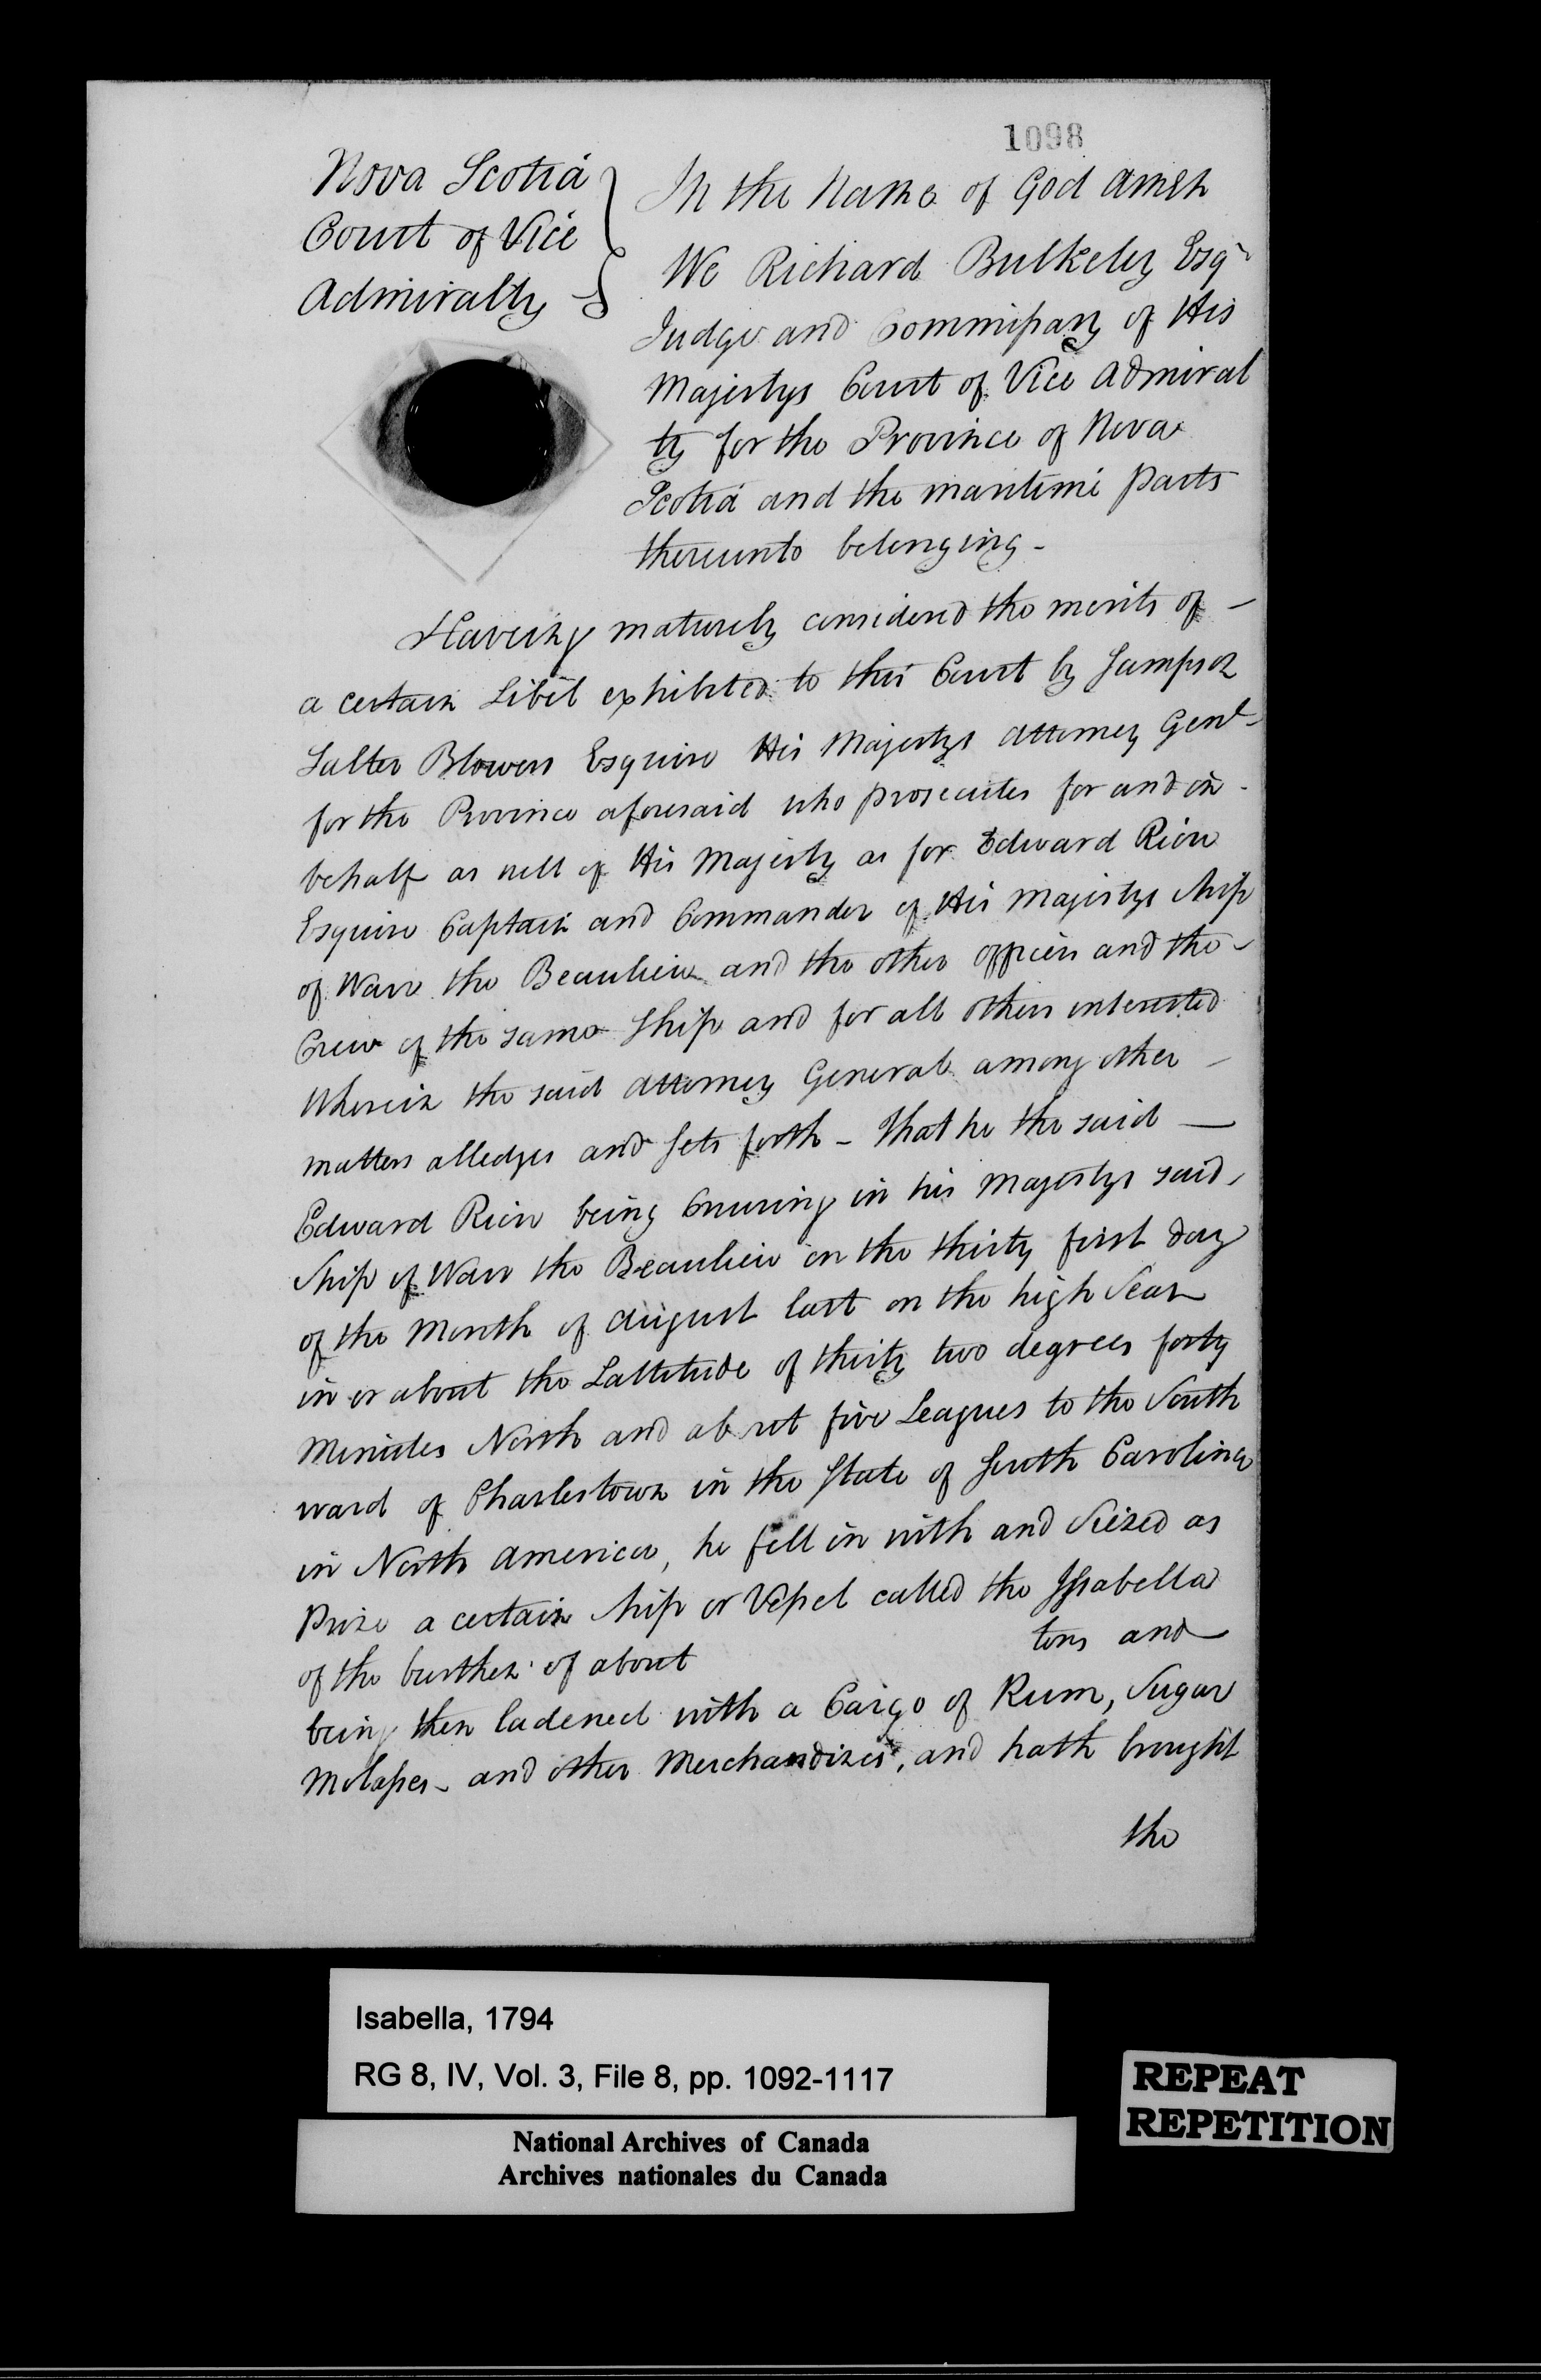 1098
Nova Scotia
Court of Vice
Admiralty
In the Name of God Amen
We Richard Bulkeley Esqr
Judge and Commissary of His
Majestys Court of Vice Admiral
ty for the Province of Nova
Scotia and the maritime parts
thereunto belonging -
Haveing maturely considered the merits of -
a certain Libel exhibited to this Court by Sampson
Salter Blowers Esquire His Majestys Attorney Genl -
for the Province aforesaid who prosecutes for and in -
behalf as well of His Majesty as for Edward Riou
Esquire Captain and Commander of His Majestys Ship
of Warr the Beaulieu and the other officers and the -
Crew of the same Ship and for all others interested
Wherein the said Attorney General among other -
matters alledges and Sets forth - That he the said —
Edward Riou being Cruising in his Majestys said
Ship of Warr the Beaulieu on the thirty first day
of the Month of August last on the high Seas
in or about the Lattitude of thirty two degrees forty
Minutes North and about five Leagues to the South
ward of Charlestown in the State of South Carolina
in North America, he fell in with and Siezed as
Prize a certain Ship or Vessel called the Issabella
of the burthen of about tons and
being then ladened with a Cargo of Rum, Sugar
Molasses - and other Merchandizes, and hath brought
the
Isabella, 1794
RG 8, IV, Vol. 3, File 8, pp. 1092-1117
National Archives of Canada
Archives nationales du Canada
REPEAT
REPETITION